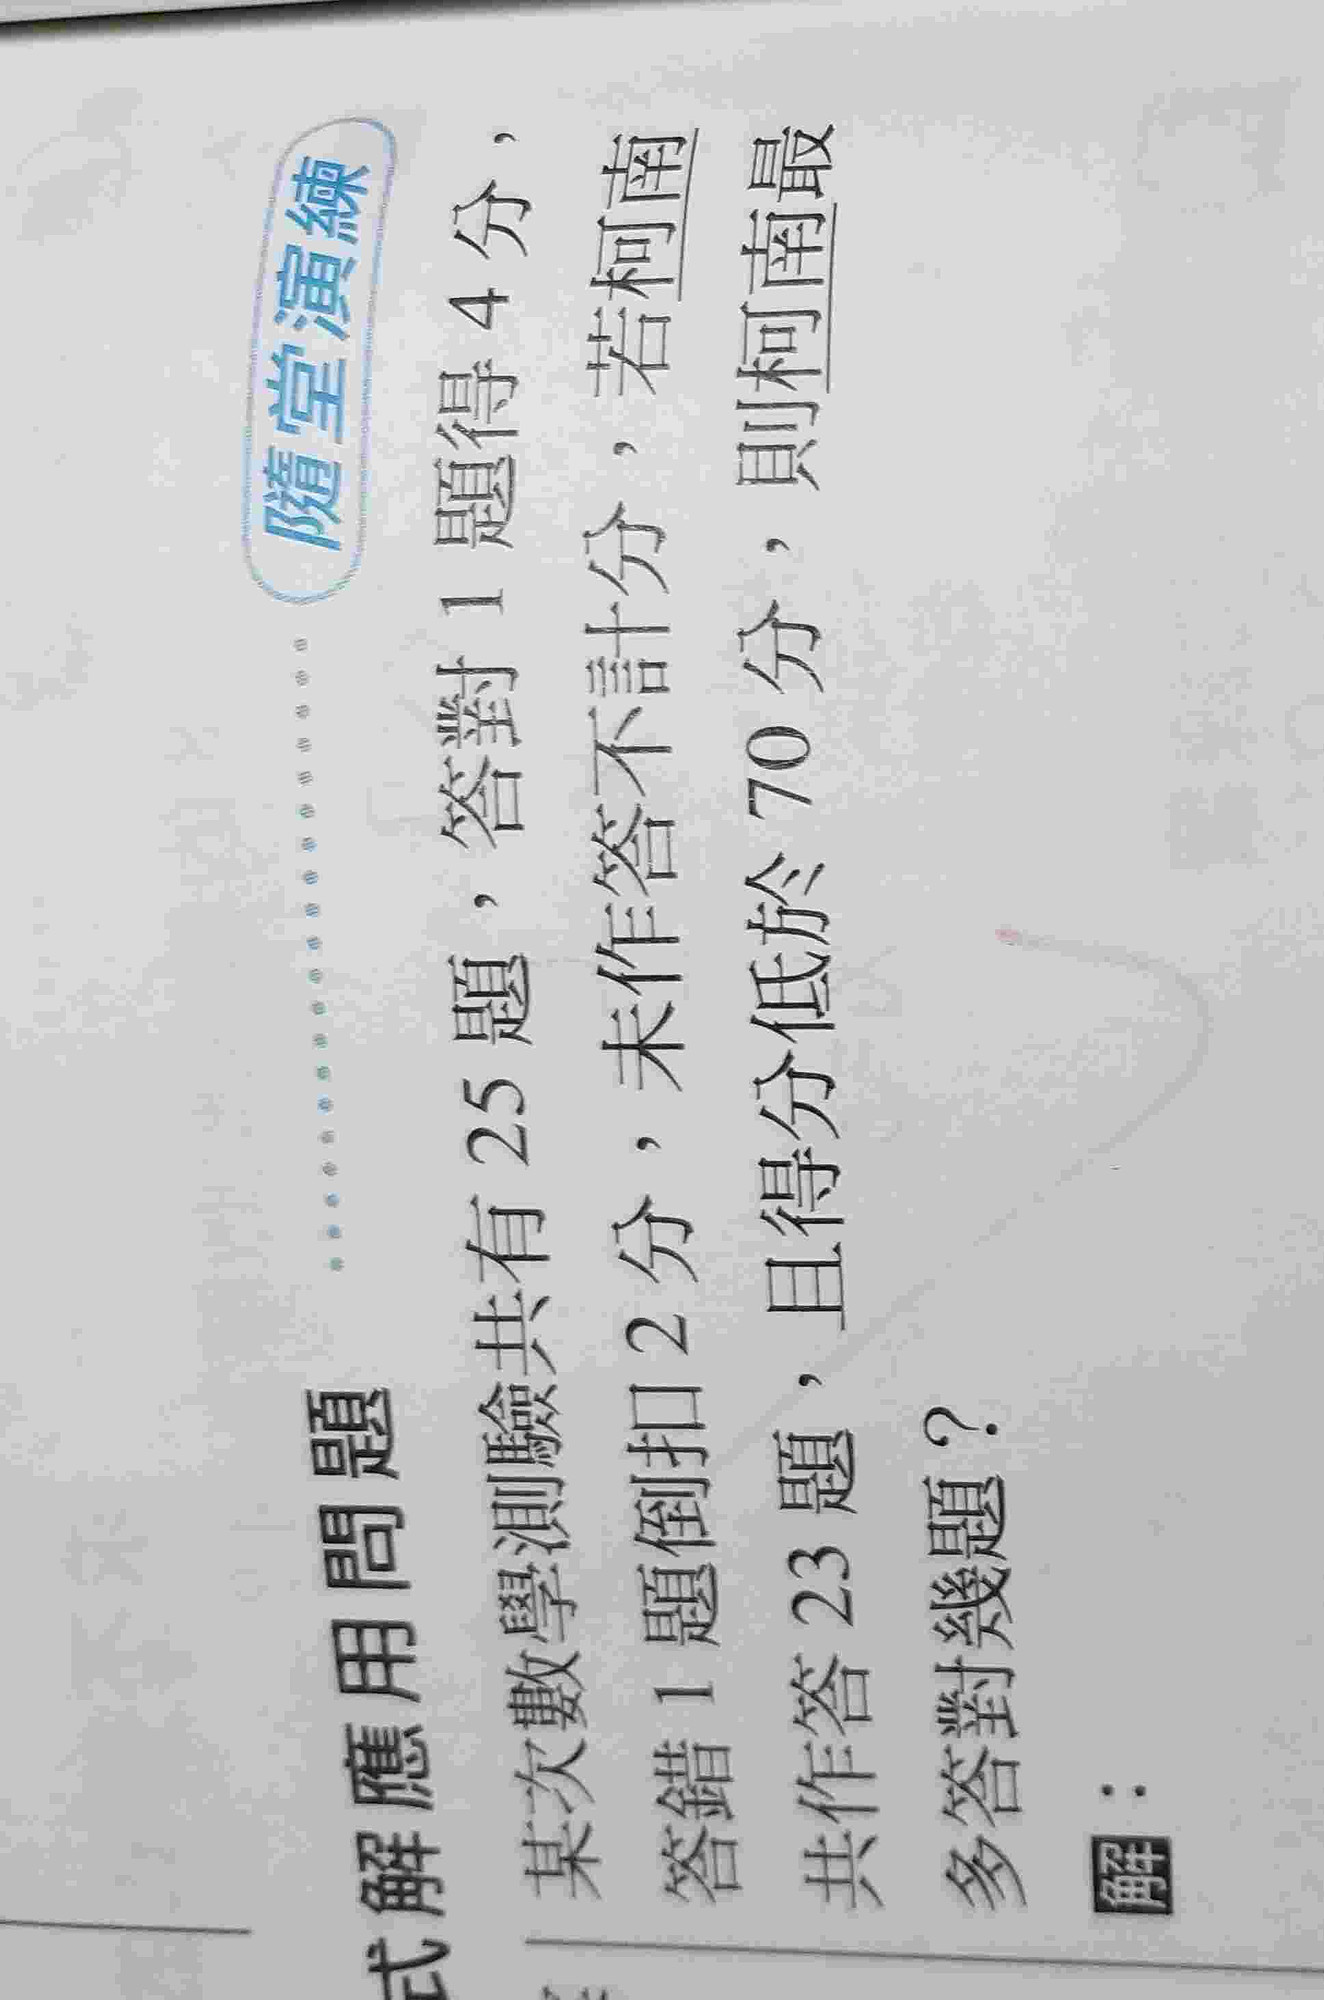 式解應用問題
隨堂演練
某次數學測驗共有 25 題，答對 1 題得 4 分，
答錯 1 題倒扣 2 分，未作答不計分，若柯南
共作答 23 題，且得分低於 70 分，則柯南最
多答對幾題？
解：